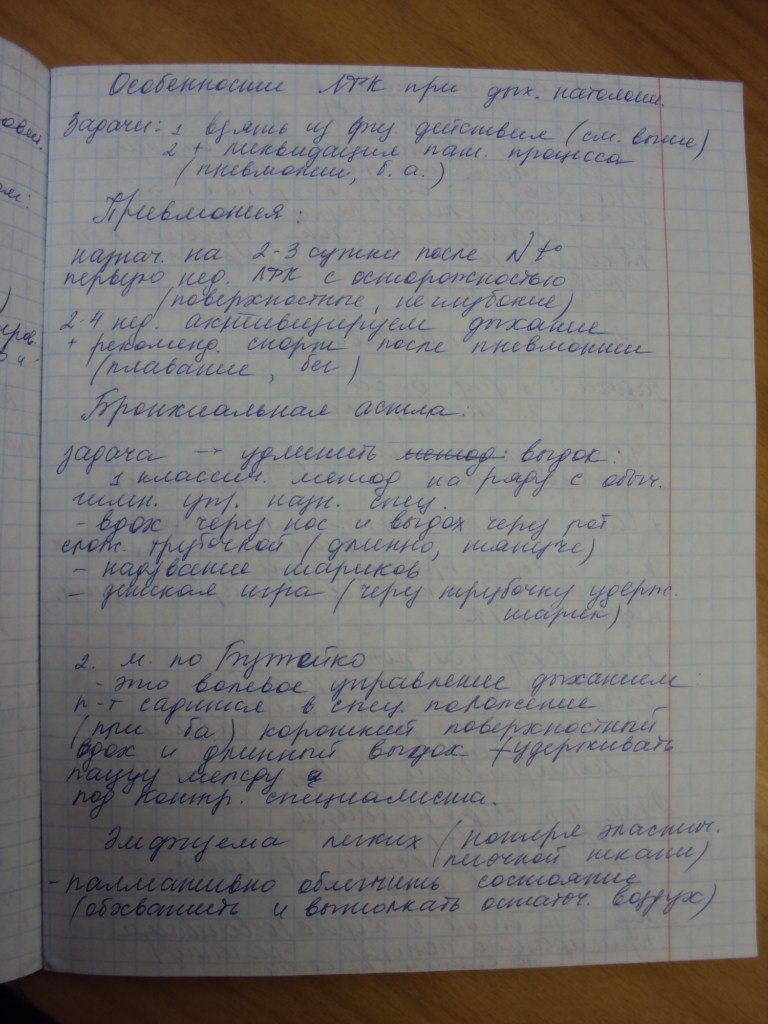 Особенности ЛФК при дых. патологии.
Задачи: 1 взять из физ действия (см. выше)
2 + ликвидация пат. процесса
(пневмонии, б. а.)
Пневмония:
назнач. на 2-3 сутки после N t°
первую нед. ЛФК с осторожностью
(поверхностные, неглубокие)
2-4 нед. активизируем дыхание
+ рекоменд. спорт после пневмонии
(плавание, бег)
Бронхиальная астма:
задача → удлинить выдох:
1 классич. метод на ряду с обыч.
гимн. упр. назн. спец.
- вдох через нос и выдох через рот
слож. трубочкой (длинно, тягуче)
- надувание шариков
- детская игра (через трубочку удерж.
шарик)
2. м. по Бутейко
- это волевое управление дыханием:
п-т садится в спец. положение
(при ба) короткий поверхностный
вдох и длинный выдох + удерживать
паузу между
под контр. специалиста.
Эмфизема легких (потеря эластич.
легочной ткани)
- паллиативно облегчить состояние
(обхватить и вытолкать остаточ. воздух)